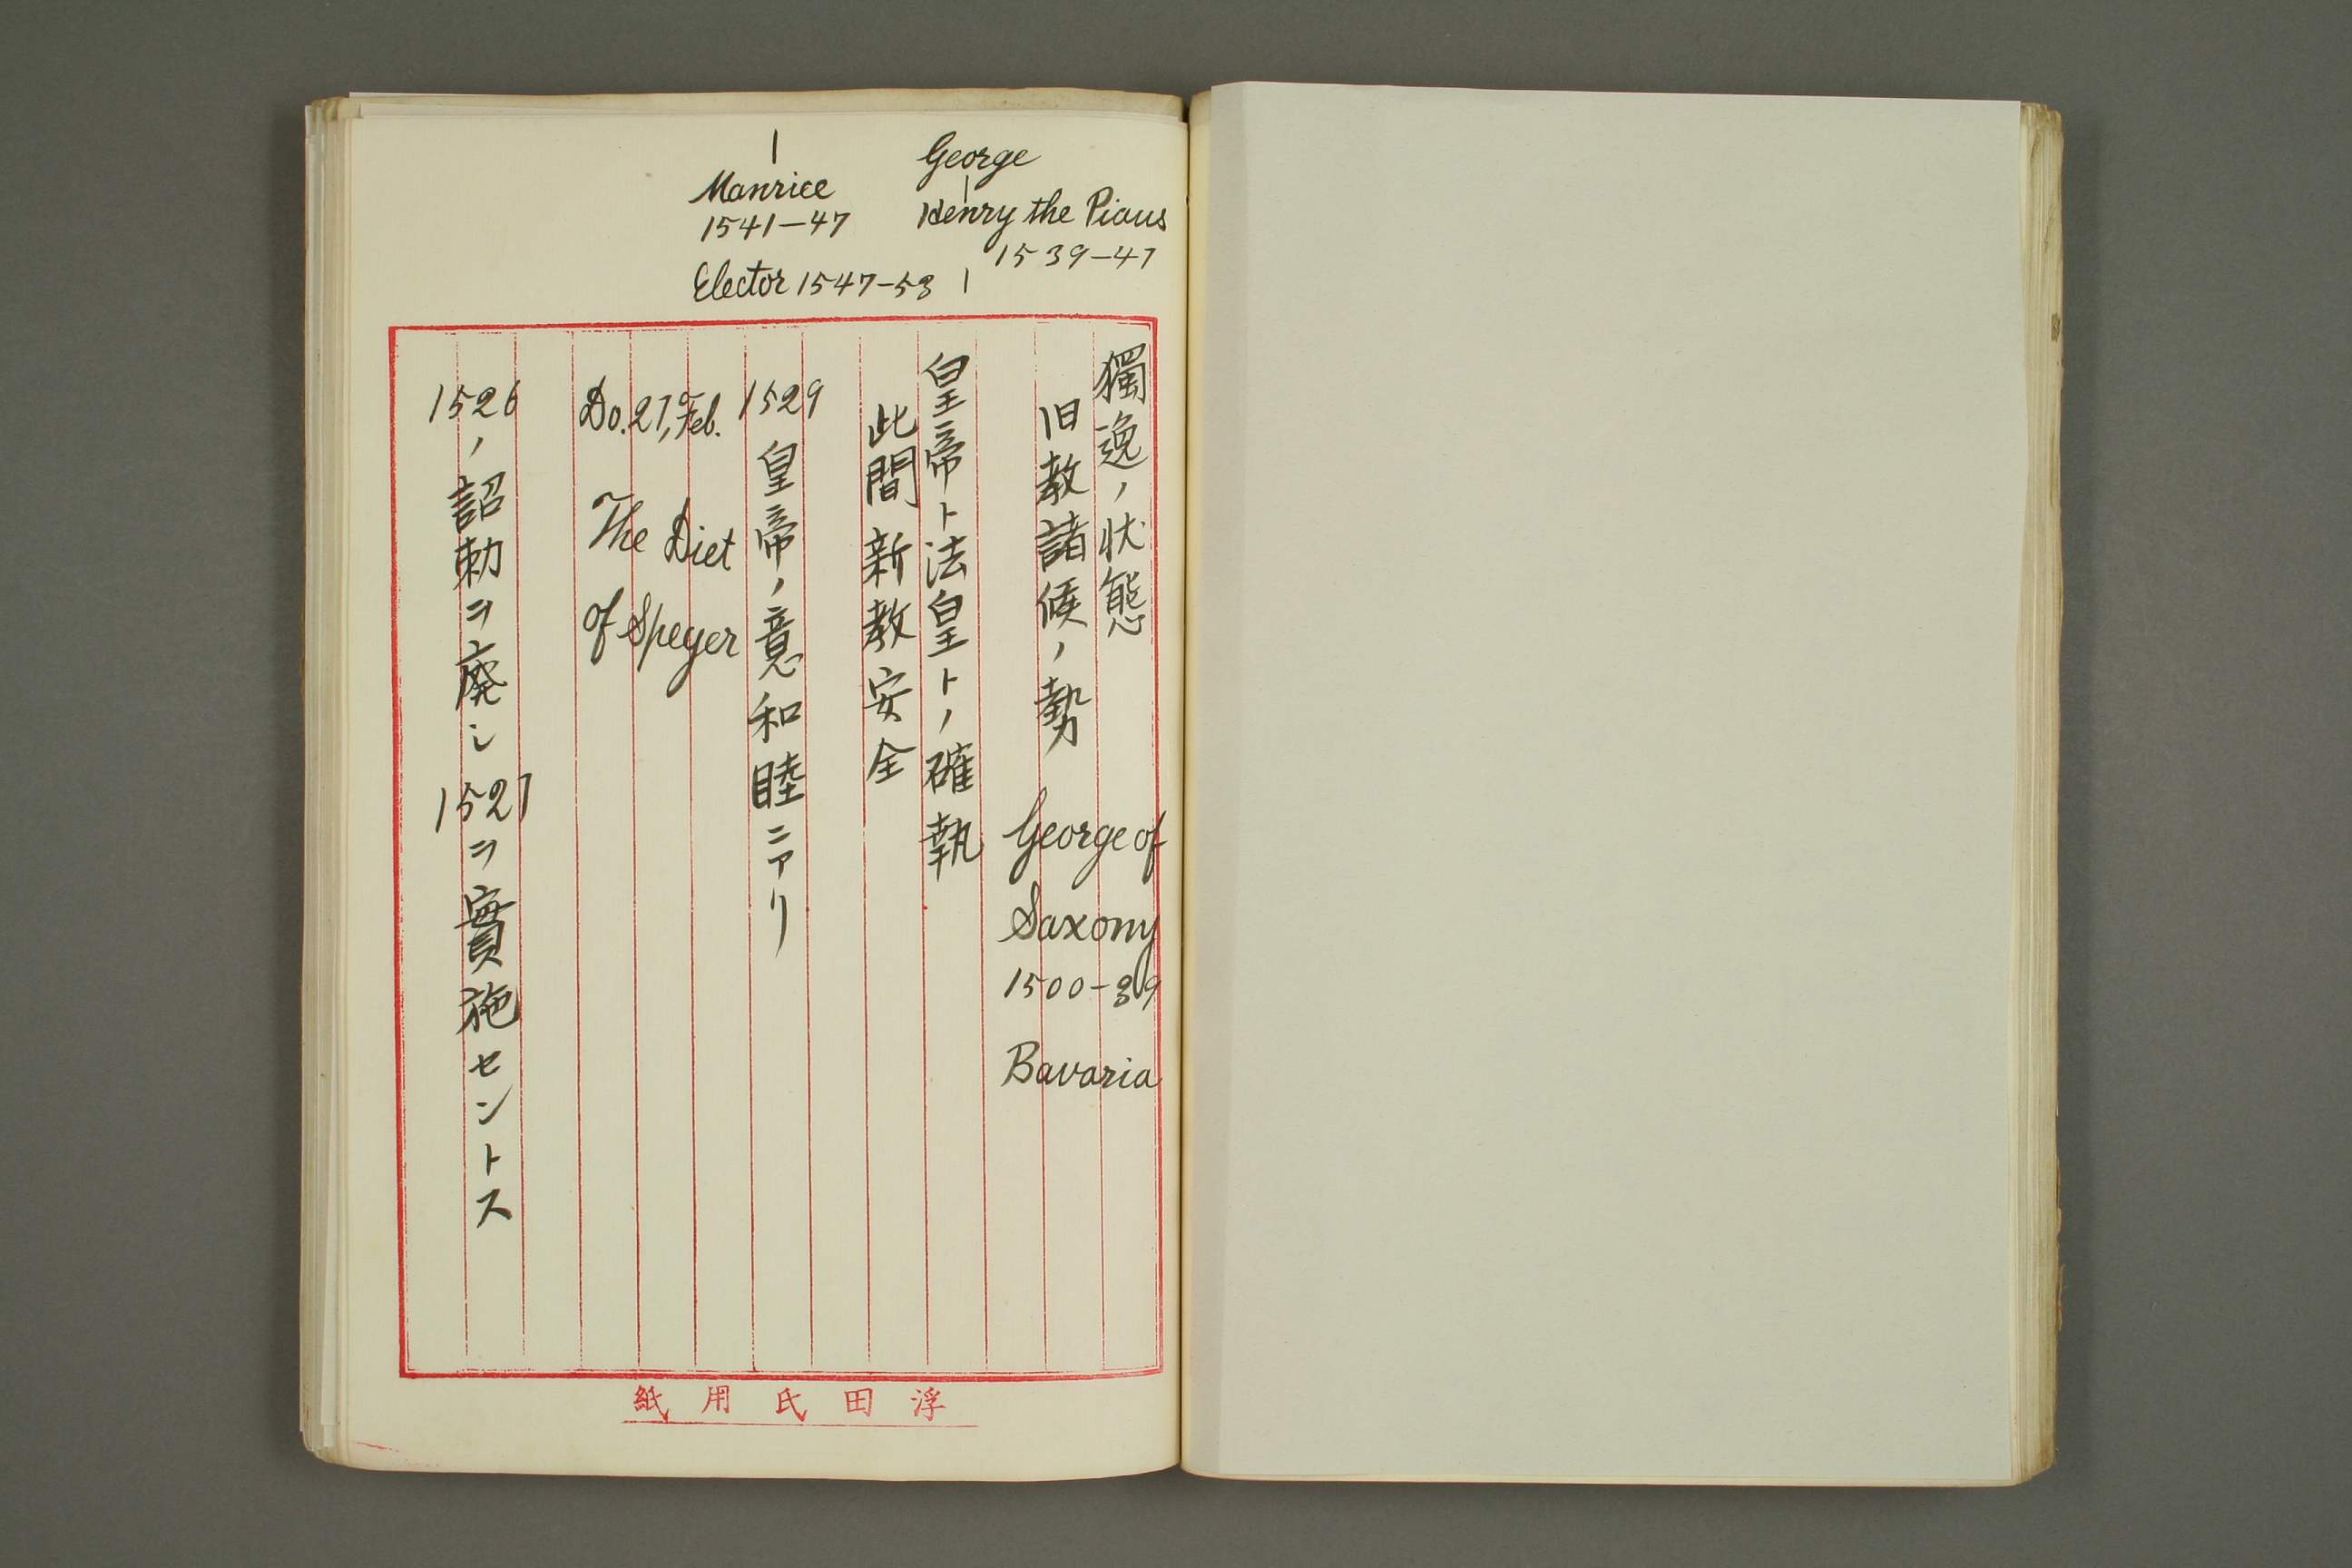 George
Henry the Pious
1539-47
Manrice
1541-47
Elector 1547-53
獨逸ノ状態
旧教諸候ノ勢
George of
Saxony
1500-39
Bavaria
皇帝ト法皇トノ確執
此間新教安全
1529 皇帝ノ意和睦ニアリ
Do. 27, Feb.
The Diet
of Speyer
1526ノ詔勅ヲ廃シ1527ヲ實施セントス
浮田氏用紙